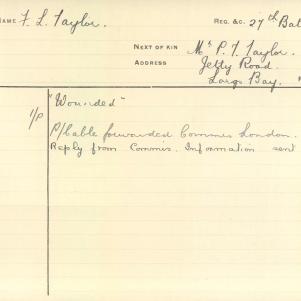 NAME F. L. Taylor. REG. &C. 27th Bat
NEXT OF KIN Mr P. T. Taylor.
ADDRESS Jetty Road.
Largs Bay.
"Wounded"
1/p P/Cable forwarded Commis London.
Reply from Commis. Information sent